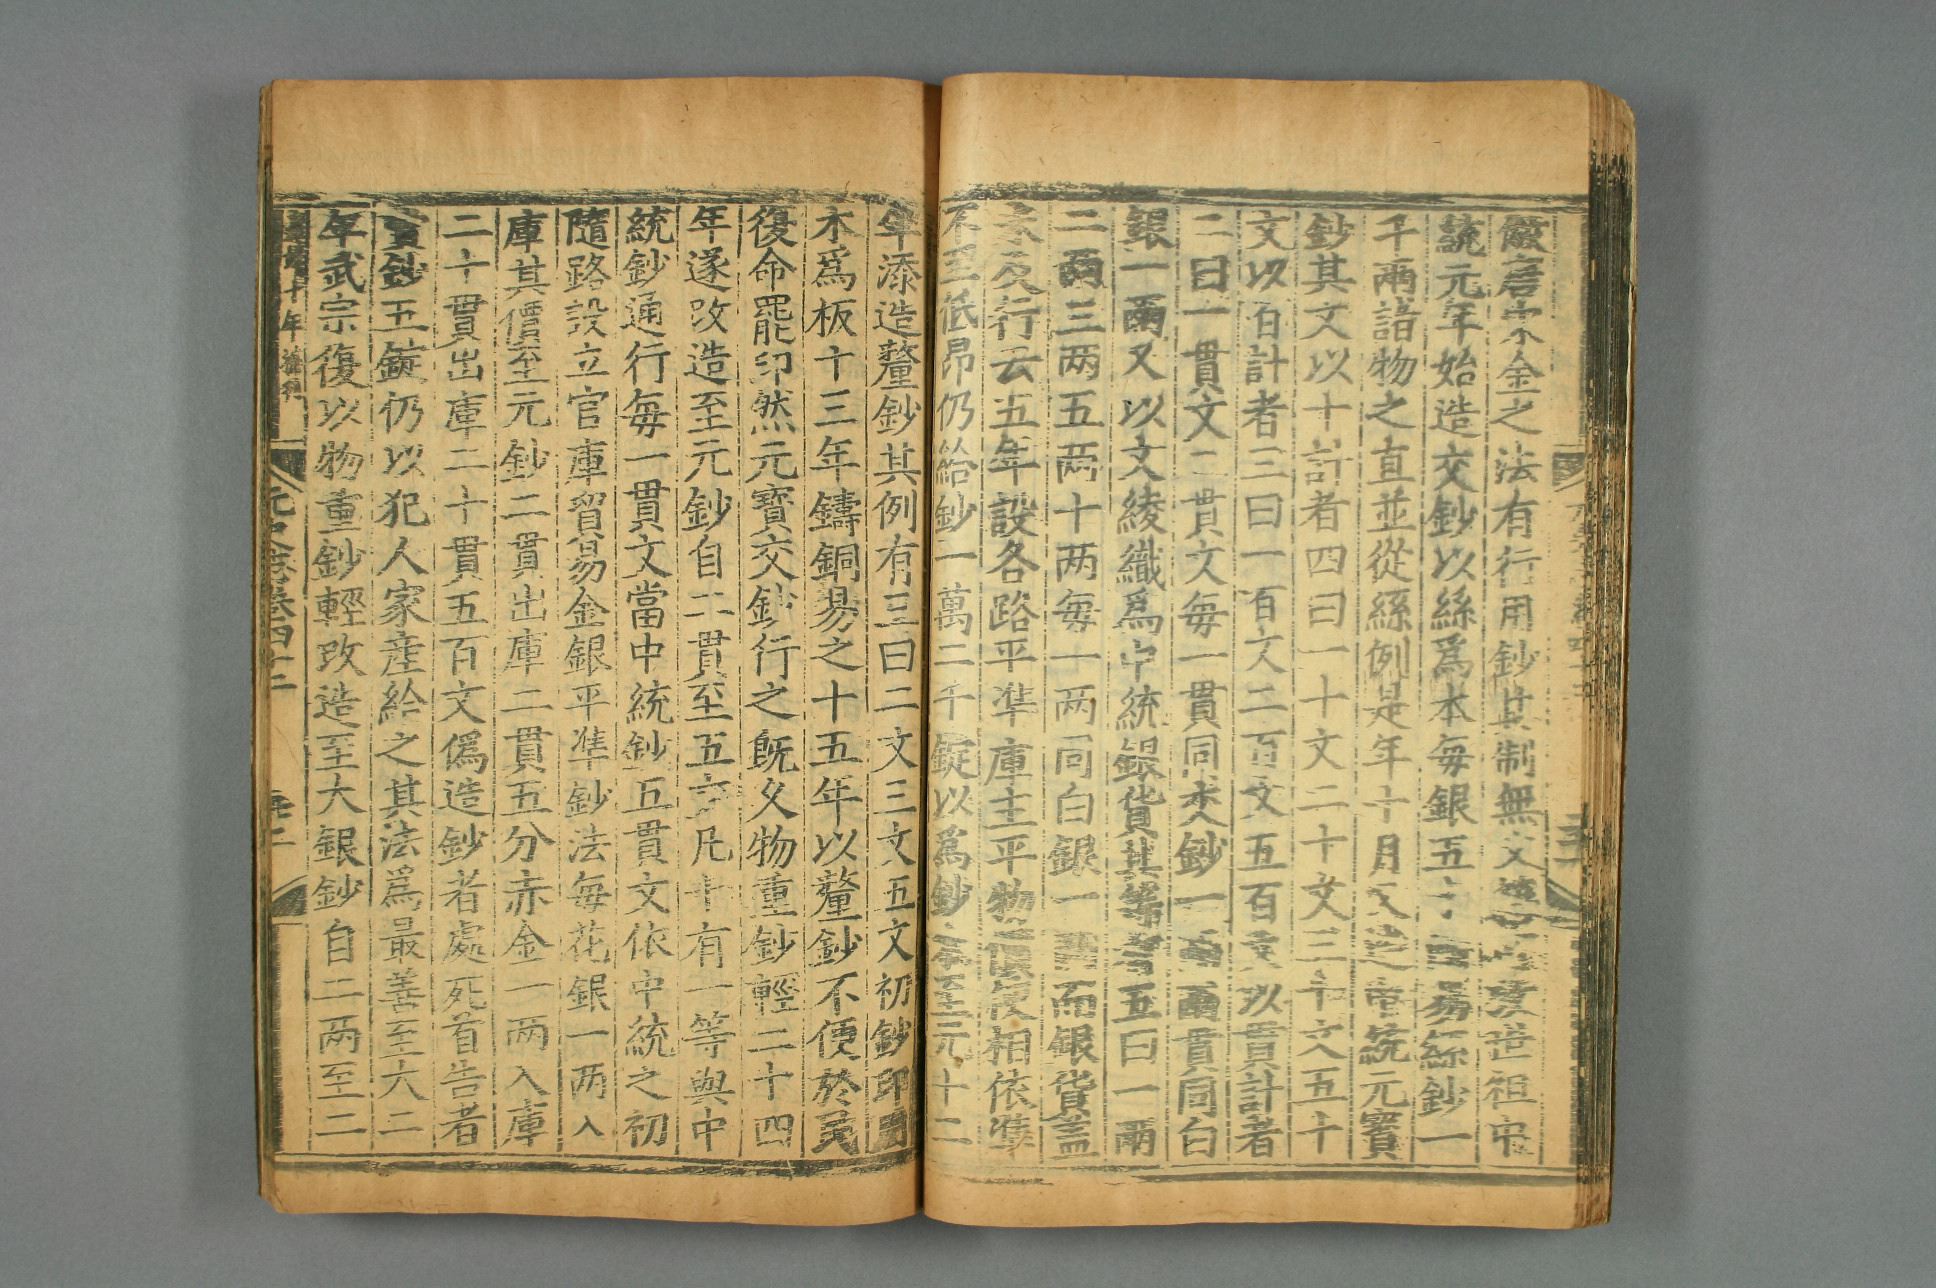 唐宋金之法有行用鈔其制無文世祖中
統元年始造交鈔以絲爲本每銀五易絲鈔一
千兩諸物之直並從絲例是年十月又造中統元寶
鈔其文以十計者四曰一十文二十文三十文五十
文以百計者三曰一百文二百文五百文以貫計者
二曰一貫文二貫文每一貫同交鈔一兩兩貫同白
銀一兩又以文綾織爲中統銀貨其等五曰一兩
二兩三两五两十两每一两同白銀一兩銀貨蓋
未及行云五年設各路平準庫主平物價使相依準
不至低昂仍給鈔一萬二千錠以爲鈔本至元十二
年添造釐鈔其例有三曰二文三文五文初鈔印用
木爲板十三年鑄銅易之十五年以釐鈔不便於民
復命罷印然元寶交鈔行之既久物重鈔輕二十四
年遂改造至元鈔自二貫至五文凡十有一等與中
統鈔通行每一貫文當中統鈔五貫文依中統之初
隨路設立官庫貿易金銀平準鈔法每花銀一两入
庫其價至元鈔二貫出庫二貫五分赤金一两入庫
二十貫出庫二十貫五百文僞造鈔者處死首告者
賞鈔五錠仍以犯人家産給之其法爲最善至大二
年武宗復以物重鈔輕改造至大銀鈔自二两至二
十年
元史卷四十二